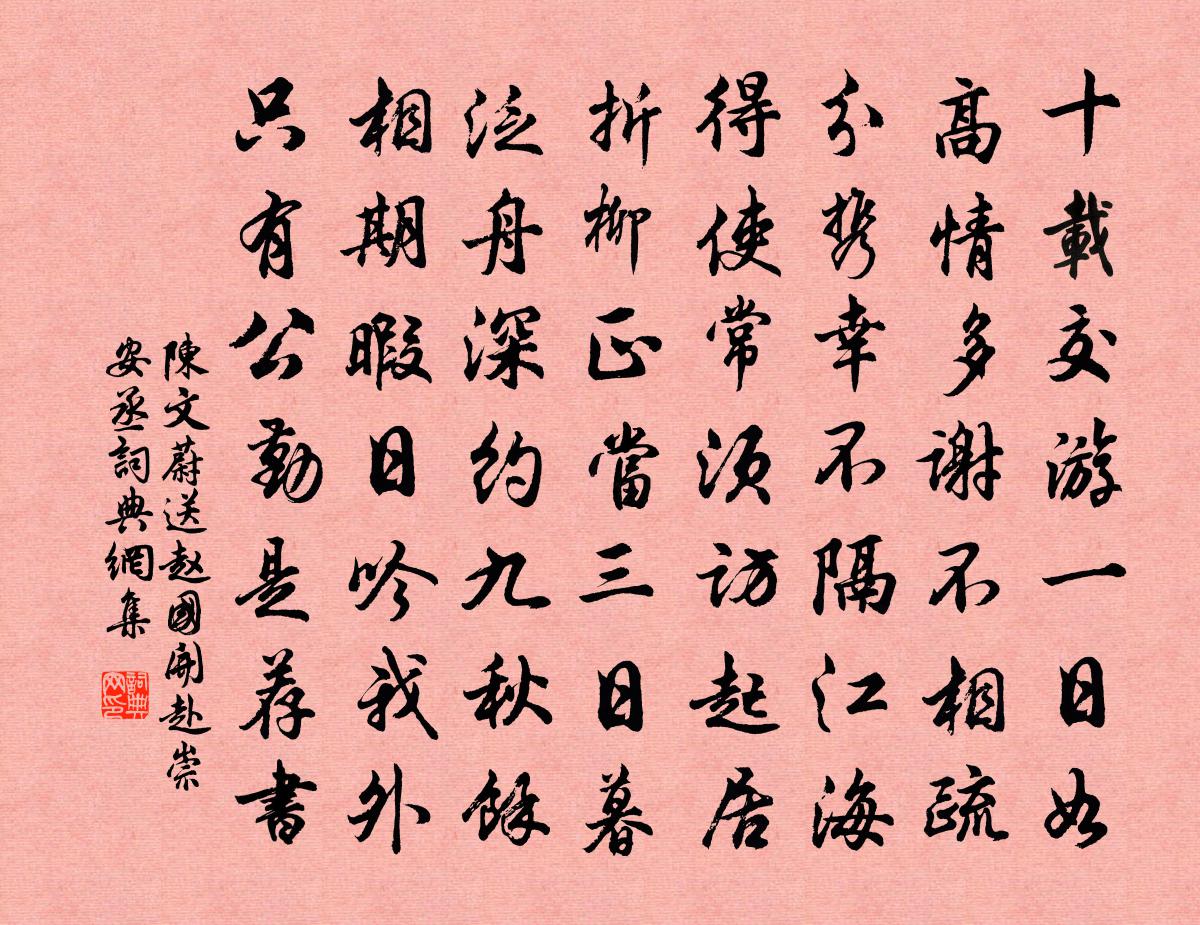 十載交游一日如
高情多謝不相疏
分携幸不隔江海
得使常須訪起居
折柳正當三日暮
泛舟深約九秋餘
相期暇日吟我外
只有公勤是荐書
陳文蔚送赵國開赴崇
安丞詞典網集
詞典网印